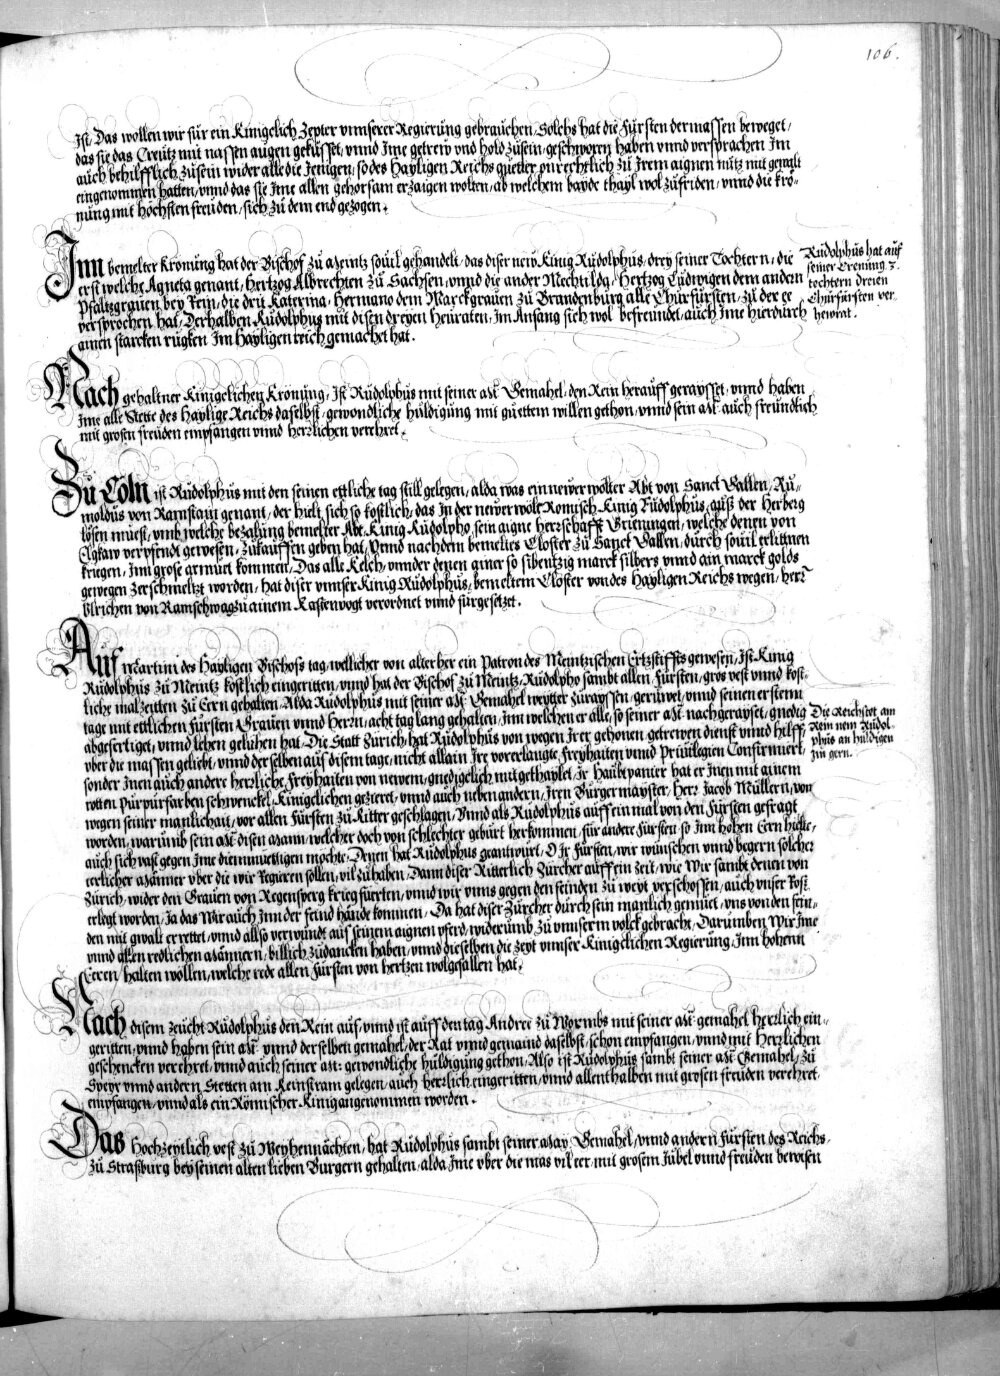 106.
ist, Das wollen wir für ein Kinigelich Zepter vnnserer Regierung gebrauchen, Solchs hat die Fürsten dermassen beweget,
das sie das Creütz mit nassen augen geküsset, vnnd Jme getrew vnd hold zusein, geschworn haben vnnd versprachen Jm
auch behilfflich zusein wider alle die Jenigen, so des Hayligen Reichs güetter vnrechtlich zu Jrem aignen nutz mit gewalt
eingenommen hatten, vnnd das sie Jme allen gehorsam erzaigen wolten, ab welchem bayde thayl wol zufriden, vnnd die Krö-
nung mit höchsten freuden, sich zu dem end gezogen.
Jnn bemelter Krönung hat der Bischof zu Meintz souil gehandelt, das diser new König Rudolphus, drey seiner Töchtern, die
erst welche Agneta genant, Hertzog Albrechten zu Sachsen, vnnd die ander Mechtilda, Hertzog Ludwigen dem andern
Pfaltzgrauen bey Rein, die drit Katerina, Hermano dem Marckgrauen zu Brandenburg alle Churfürsten, zu der ee
versprochen hat, Derhalben Rudolphus mit disen dreyen Heuraten, Jm Anfang sich wol befreundet, auch Jme hierdurch
ainen starcken rugken Jm Hayligen reich gemachet hat.
Rudolphus hat auf
seiner Crenung 3.
tochtern dreien
Churfürsten ver
heyrat.
Nach gehaltner Kinigelichen Krönung, Jst Rudolphus mit seiner Mt Gemahel, den Rein herauff gerayset, vnnd haben
Jme alle Stette des Haylige Reichs daselbst, gewondliche huldigung mit guettem willen gethon, vnnd sein Mt auch freundlich
mit grosen freuden empfangen vnnd herrlichen verehret.
Zu Cöln ist Rudolphus mit den seinen ettliche tag still gelegen, alda was ein newer wölter Abt von Sanct Gallen, Ru-
moldus von Ramstain genant, der hielt sich so kostlich, das Jn der newer wölt Romisch Kinig Rudolphus, auß der Herberg
lösen muest, vmb welche bezalung bemelter Abt, Kinig Rudolpho, sein aigne herrschafft Grieningen, welche denen von
verpfendt gewesen, zukauffen geben hat, Vnnd nachdem bemeltes Closter zu Sanct Gallen, durch souil erlittnen
kriegen, Jnn grose armuet kommen, Das alle Kelch, vnnder denen ainer so sibentzig marck silbers vnnd ain marck golds
gewegen zerschmeltzt worden, hat diser vnnser Kinig Rudolphus, bemeltem Closter von des Hayligen Reichs wegen, herr
Ulrichen von Ramschwag zu ainem Kastenvogt verordnet vnnd fürgesetzet.
Auf Martini des Hayligen Bischofs tag, wellicher von alter her ein Patron des Meintzischen Ertzstiffts gewesen, Jst Kinig
Rudolphus zu Meintz kostlich eingeritten, vnnd hat der Bischof zu Meintz, Rudolpho sambt allen Fürsten, gros vest vnnd kost-
liche malzeitten zu Eern gehalten, Alda Rudolphus mit seiner Mt Gemahel weytter zuraysen, geruwet, vnnd seinen ersten
tage mit ettlichen Fürsten Grauen vnnd Herrn, acht tag lang gehalten, Jnn welchen er alle, so seiner Mt nachgerayset, gnedig
abgefertiget, vnnd lehen geluhen hat, Die Statt Zürich, hat Rudolphus von wegen Jrer gethonen getrewen dienst vnnd hilff,
vber die massen geliebt, vnnd der selben auf disem tage, nicht allain Jre vorerlangte Freyhaiten vnnd Priuilegien Confirmiert,
sonder Jnen auch andere herrliche Freyhaiten von newem, gnedigelich mitgethaylet, Jr Haubtpanier hat er Jnen mit ainem
rotten Purpurfarben schwenckel, Kinigelichen gezieret, vnnd auch neben andern, Jren Burgermayster, Herr Jacob Müllern, von
wegen seiner manlichait, vor allen Fürsten zu Ritter geschlagen, Vnnd als Rudolphus auff ein mal von den Fürsten gefragt
worden, warumb sein Mt disen Mann, welcher doch von schlechter geburt herkommen, für ander Fürsten so Jnn hohen Eern hielte,
auch sich vast gegen Jme diemmuettigen möchte, Denen hat Rudolphus geantwurt, O Jr Fürsten, wir wünschen vnnd begern solcher
eerlicher Männer vber die wir Regieren sollen, vil zu haben, Dann diser Ritterlich Zürcher auff ein zeit, wie Wir sambt denen von
Zürich, wider den Grauen von Regensperg krieg fuerten, vnnd wir vnns gegen den feinden zu weyt verschossen, auch vnser Ross
erlegt worden, Ja das Wir auch Jnn der feind hände kommen, Da hat diser Zürcher durch sein manlich gemüet, vns von den fein-
den mit gwalt errettet, vnnd allso verwundt auf seinem aignen pferd, widerumb zu vnnserm volck gebracht, Darumben Wir Jme
vnnd allen redlichen Männern, billich zudancken haben, vnnd dieselben die zeyt vnnser Kinigelichen Regierung, Jnn hohenn
Eeren, halten wollen, welche rede allen Fürsten von hertzen wolgefallen hat.
Die Reichstet am
Rein nem Rudol-
phus an huldigen
Jm gern.
Nach disem zeucht Rudolphus den Rein auf, vnnd ist auff den tag Andree zu Wormbs mit seiner Mt gemahel herrlich ein-
geritten, vnnd haben sein Mt vnnd derselben gemahel, der Rat vnnd gemaind daselbst, schon empfangen, vnnd mit Herrlichen
geschencken verehret, vnnd auch seiner Mt gewondliche huldigung gethon, Also ist Rudolphus sambt seiner Mt Gemahel, zu
Speyr vnnd andern Stetten am Reinstram gelegen, auch herrlich eingeritten, vnnd allenthalben mit grosen freuden verehret
empfangen, vnnd als ein Römischer Kinig angenommen worden.
Das Hochzeytlich vest zu Weyhennächten, hat Rudolphus sambt seiner May: Gemahel, vnnd andern Fürsten des Reichs,
zu Straßburg bey seinen alten lieben Burgern gehalten, alda Jme vber die mas vil eer, mit grosem Jubel vnnd freuden bewisen